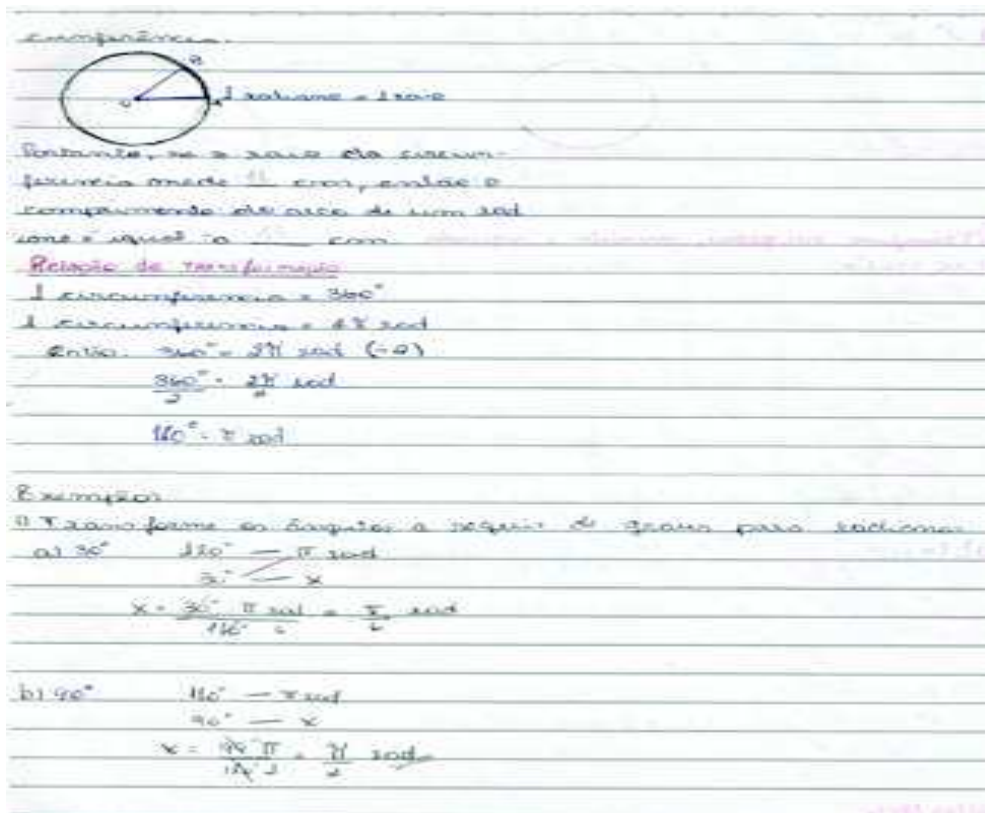 cunferência.
B
O A 1 radiano = 1 raio
Portanto, se o raio da circun-
ferência mede cm, então o
comprimento do arco de um rad
iano é igual a cm
Relação de Transformação
1 circunferência = 360°
1 circunferência = 2π rad
Então: 360° = 2π rad (÷2)
360°/2 = 2π/2 rad
180° = π rad
Exemplos
1) Transforme os ângulos a seguir de graus para radianos
a) 30° 180° — π rad
30° — x
x = 30° π rad / 180° 6 = π/6 rad
b) 90° 180° — π rad
90° — x
x = 90° π / 180° 2 = π/2 rad